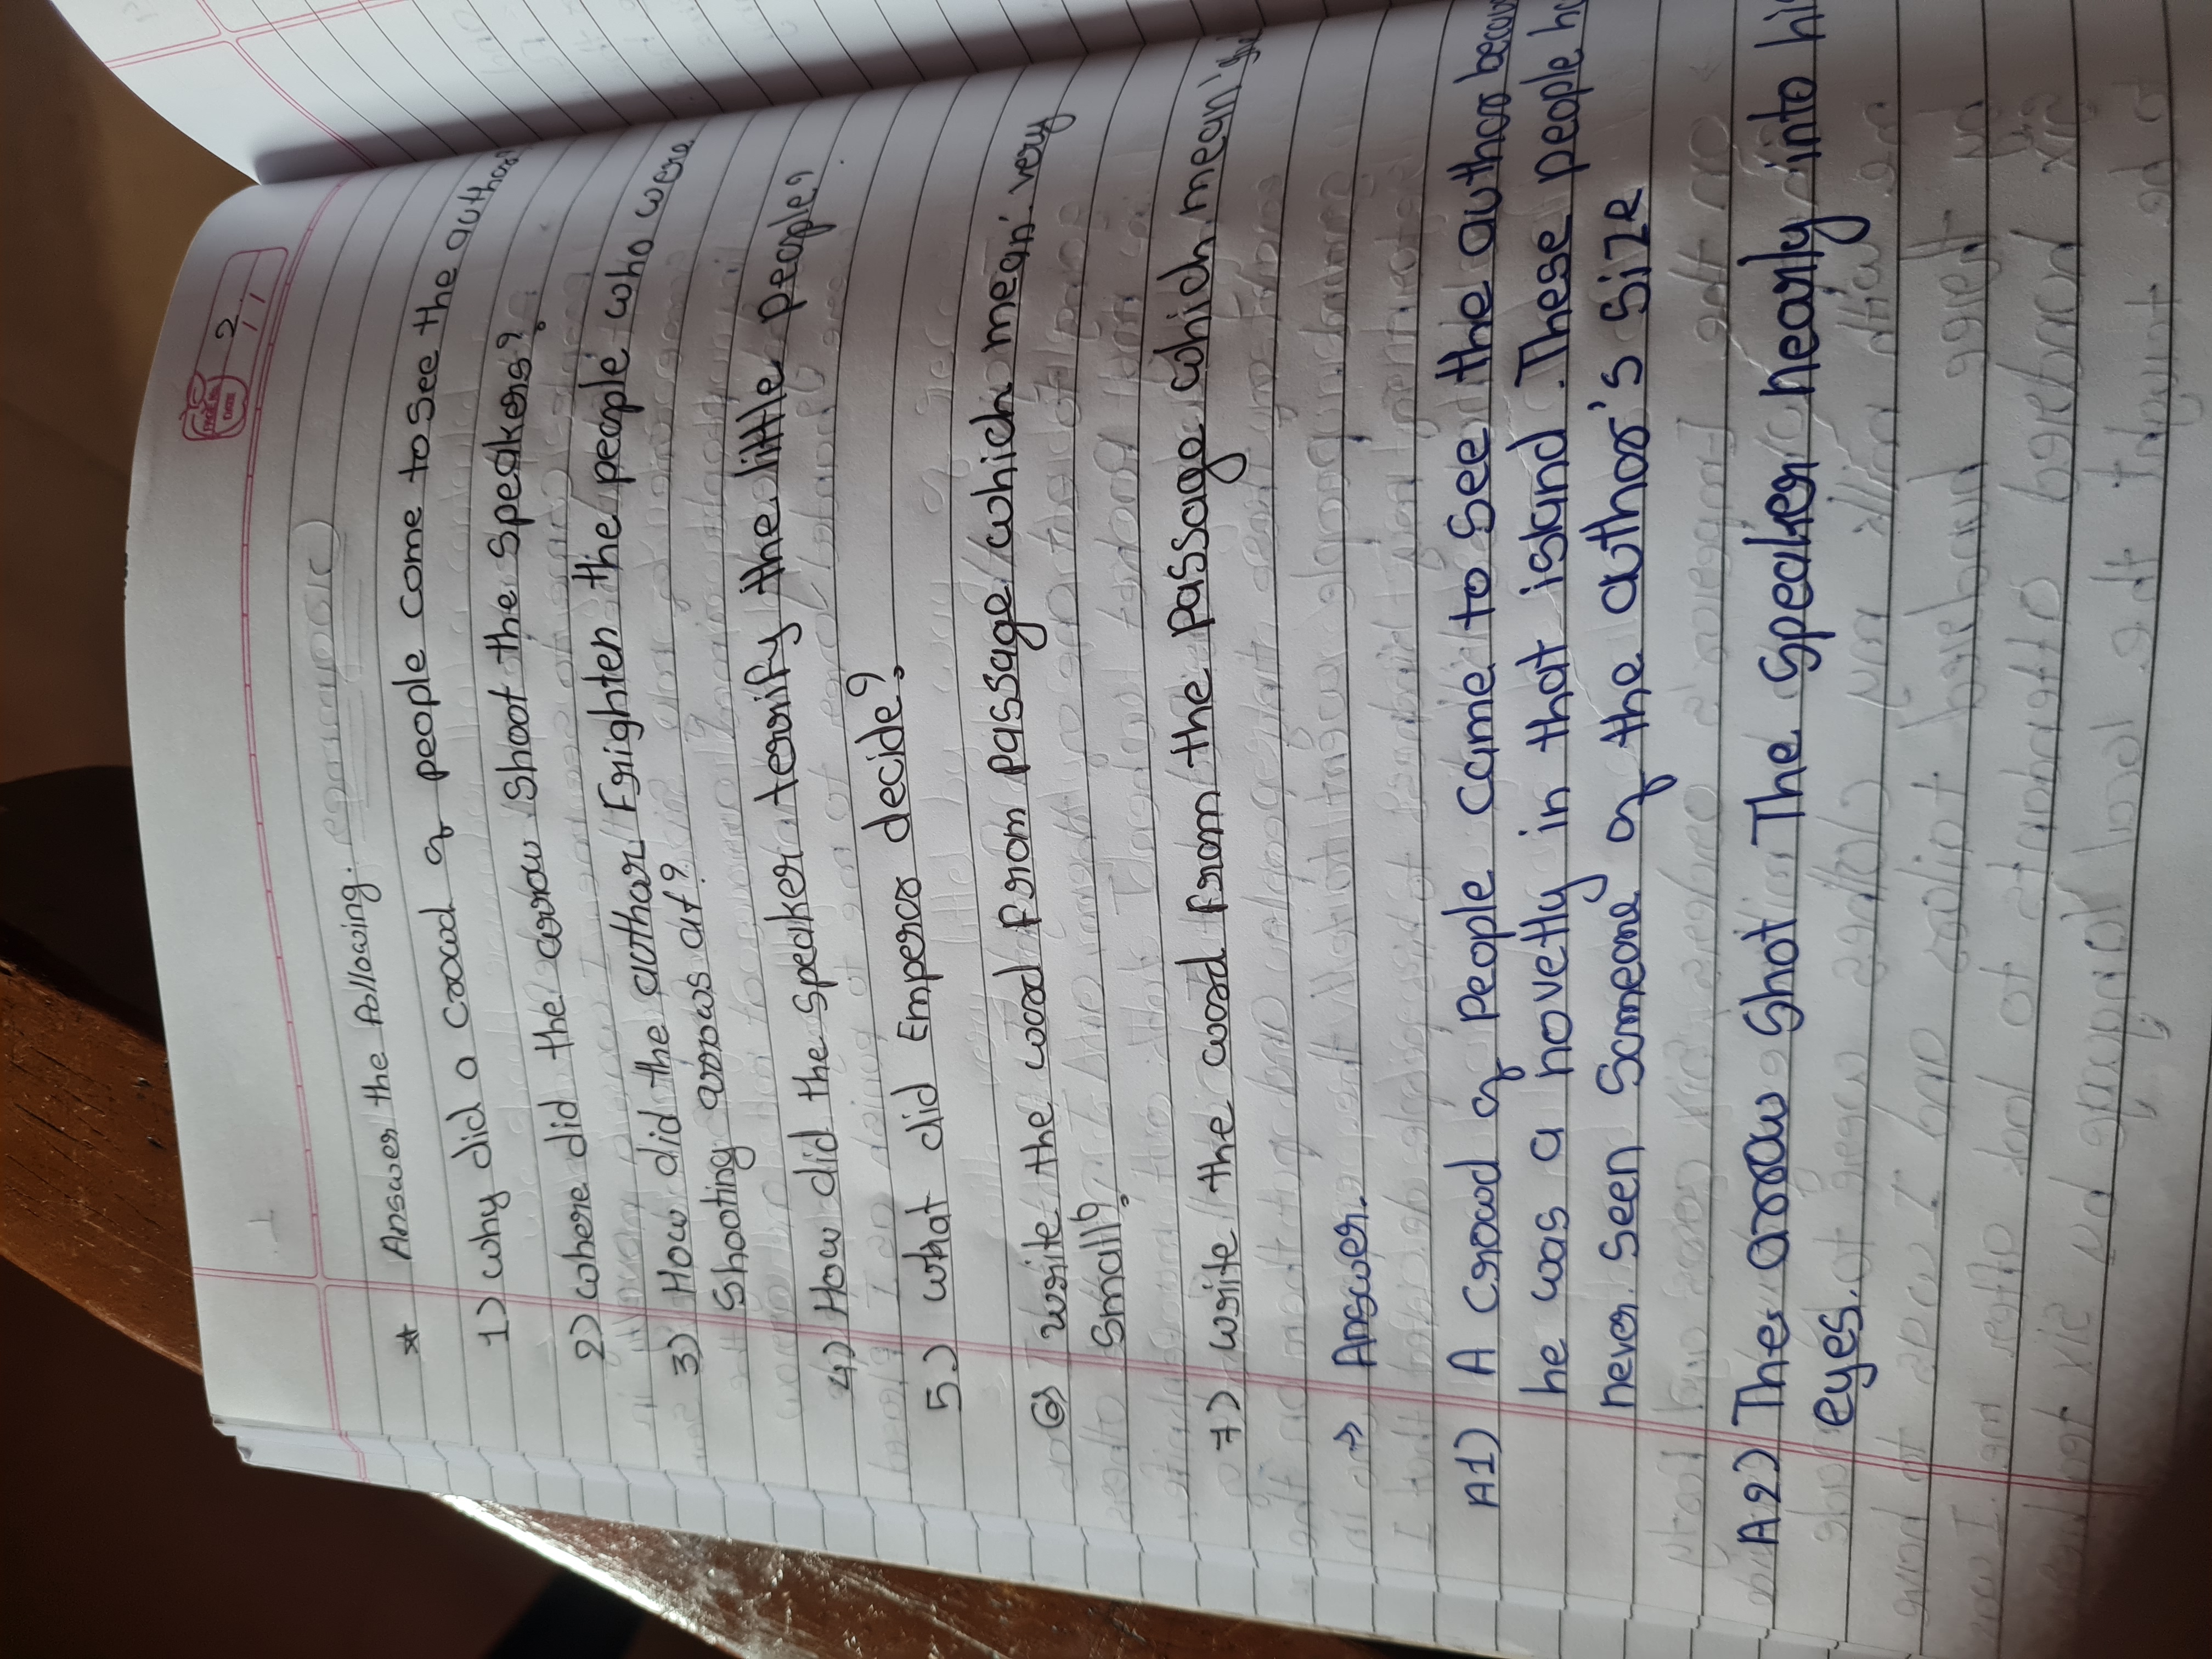 PAGE NO.
DATE
2
* Answer the following.
1) Why did a crowd of people come to see the author?
2) Where did the arrow shoot the speakers?
3) How did the author Frighten the people who were
shooting arrows at?
4) How did the speaker terrify the little people?
5.) What did Emperor decide?
6) write the word from passage which mean 'very
small?
7) write the word from the passage which mean '
→ Answer.
A1) A crowd of people came to see the author
he was a novetly in that island. These people
never seen someone of the author's size
A2) The arrow shot The speaker nearly into
eyes.